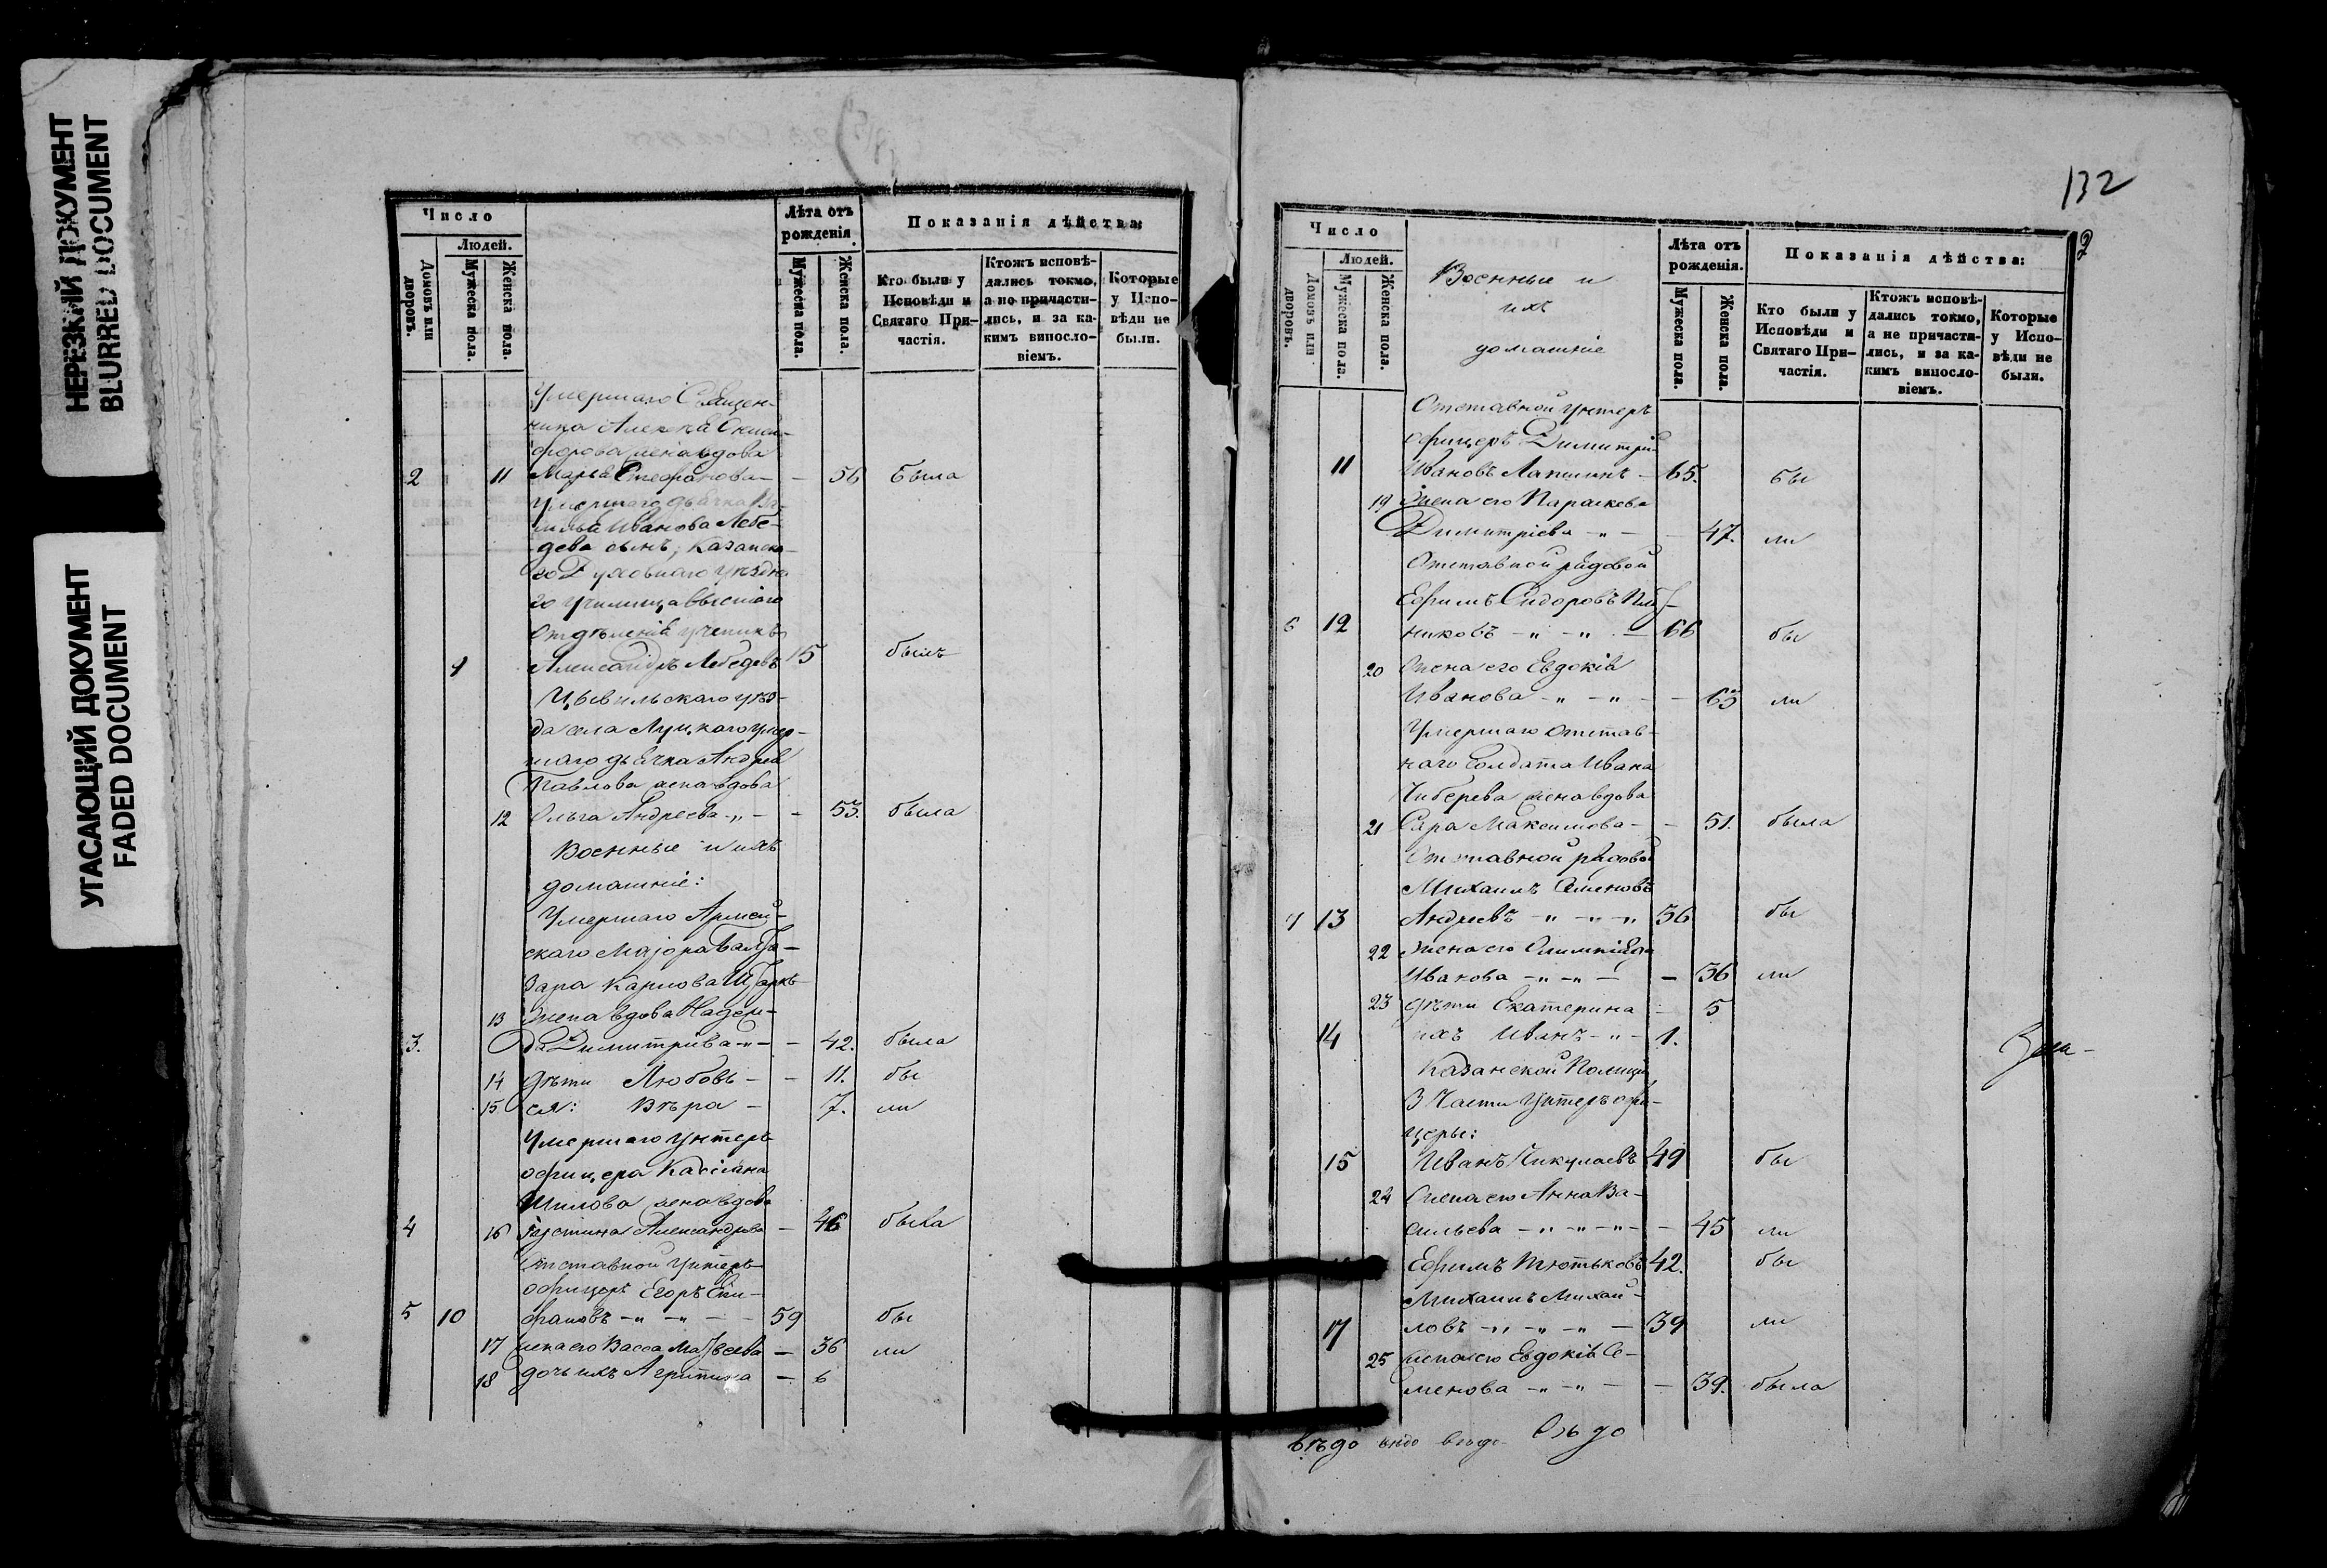 НЕРЕЗКИЙ ДОКУМЕНТ
BLURRED DOCUMENT
УГАСАЮЩИЙ ДОКУМЕНТ
FADED DOCUMENT
Число
Людей.
Домовъ или дворовъ.
Мужеска пола.
Женска пола.
Лѣта отъ рожденія
Мужеска пола.
Женска пола.
Показанія дѣйства:
Кто были у Исповѣди и Святаго Причастія.
Ктожъ исповѣдались токмо, а не причастились, и за какимъ винословіемъ.
Которые у Исповѣди не были.
Умершаго Священ-
ника Алексѣя
жена вдова
2 11 Марья Стефанова - - 56 была
Умершаго дьячка
Иванова Лебе-
дева сынъ, Казанска-
го Духовнаго Уѣздна-
го Училища
Отдѣленія ученикъ
Александръ Лебедевъ 15 былъ
Цывильскаго уѣз-
да села умер-
шаго дьячка Андрея
Павлова жена вдова
12 Ольга Андреева - „ - - 53. была
Военные и ихъ
домашніе:
Умершаго Армей-
скаго Маіора
Карлова
13 Жена вдова Надеж-
3. да Димитріева - „ - - 42. была
14 Дѣти Любовь - - 11. бы
15 ея: Вѣра - 7. ли
Умершаго Унтеръ
офицера Кассіана
Шилова жена вдова
4 16 Іустина Александрова - 46 была
Отставной Унтеръ-
офицеръ Егоръ Епи-
5 10 фановъ - „ - „ - - 59 бы
17 жена его Васса Матвеева - 36 ли
18 дочь ихъ - 6
132
2
Число
Людей.
Домовъ или дворовъ.
Мужеска пола.
Женска пола.
Военные и
ихъ
домашніе
Лѣта отъ рожденія.
Мужеска пола.
Женска пола.
Показанія дѣйства:
Кто были у Исповѣди и Святаго Причастія.
Ктожъ исповѣдались токмо, а не причастились, и за какимъ винословіемъ.
Которые у Исповѣди не были.
Отставной Унтеръ
офицеръ Димитрій
11 Ивановъ Лапшинъ - 65. бы
19 Жена его Параскева
Димитріева - „ - - 47. ли
Отставной рядовой
Ефимъ Сидоровъ
6 12 никовъ - „ - „ - 66 бы
20 Жена его Евдокія
Иванова - „ - „ - - 63 ли
Умершаго Отстав-
наго Солдата Ивана
жена вдова
21 Сара Максимова - - 51. была
Отставной рядовой
Михаилъ Семеновъ
7 13 Андреевъ - „ - „ - „ 56 бы
22 Жена его Олимпіада
Иванова - „ - „ - - 36 ли
23 Дѣти Екатерина - 5
14 ихъ Иванъ - „ - 1.
Казанской Полиціи
3 Части Унтеръ офи-
церы:
15 Иванъ Никулаевъ 49 бы
24 Жена его Анна Ва-
сильева - „ - „ - „ - - 45 ли
Ефимъ Тютьковъ 42. бы
Михаилъ Михай-
17 ловъ - „ - „ - „ - 39 ли
25 Жена его Евдокія Се-
менова - „ - „ - - 39. была